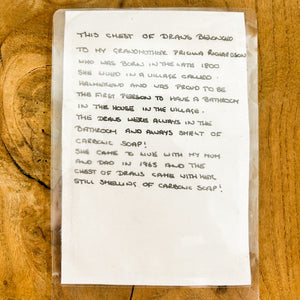 THIS CHEST OF DRAWS BELONGED
TO MY GRANDMOTHER PRICILLA RICHARDSON
WHO WAS BORN IN THE LATE 1800
SHE LIVED IN A VILLAGE CALLED
AND WAS PROUD TO BE
THE FIRST PERSON TO HAVE A BATHROOM
IN THE HOUSE IN THE VILLAGE.
THE DRAWS WERE ALWAYS IN THE
BATHROOM AND ALWAYS SMELT OF
CARBOLIC SOAP!
SHE CAME TO LIVE WITH MY MUM
AND DAD IN 1965 AND THE
CHEST OF DRAWS CAME WITH HER
STILL SMELLING OF CARBOLIC SOAP!